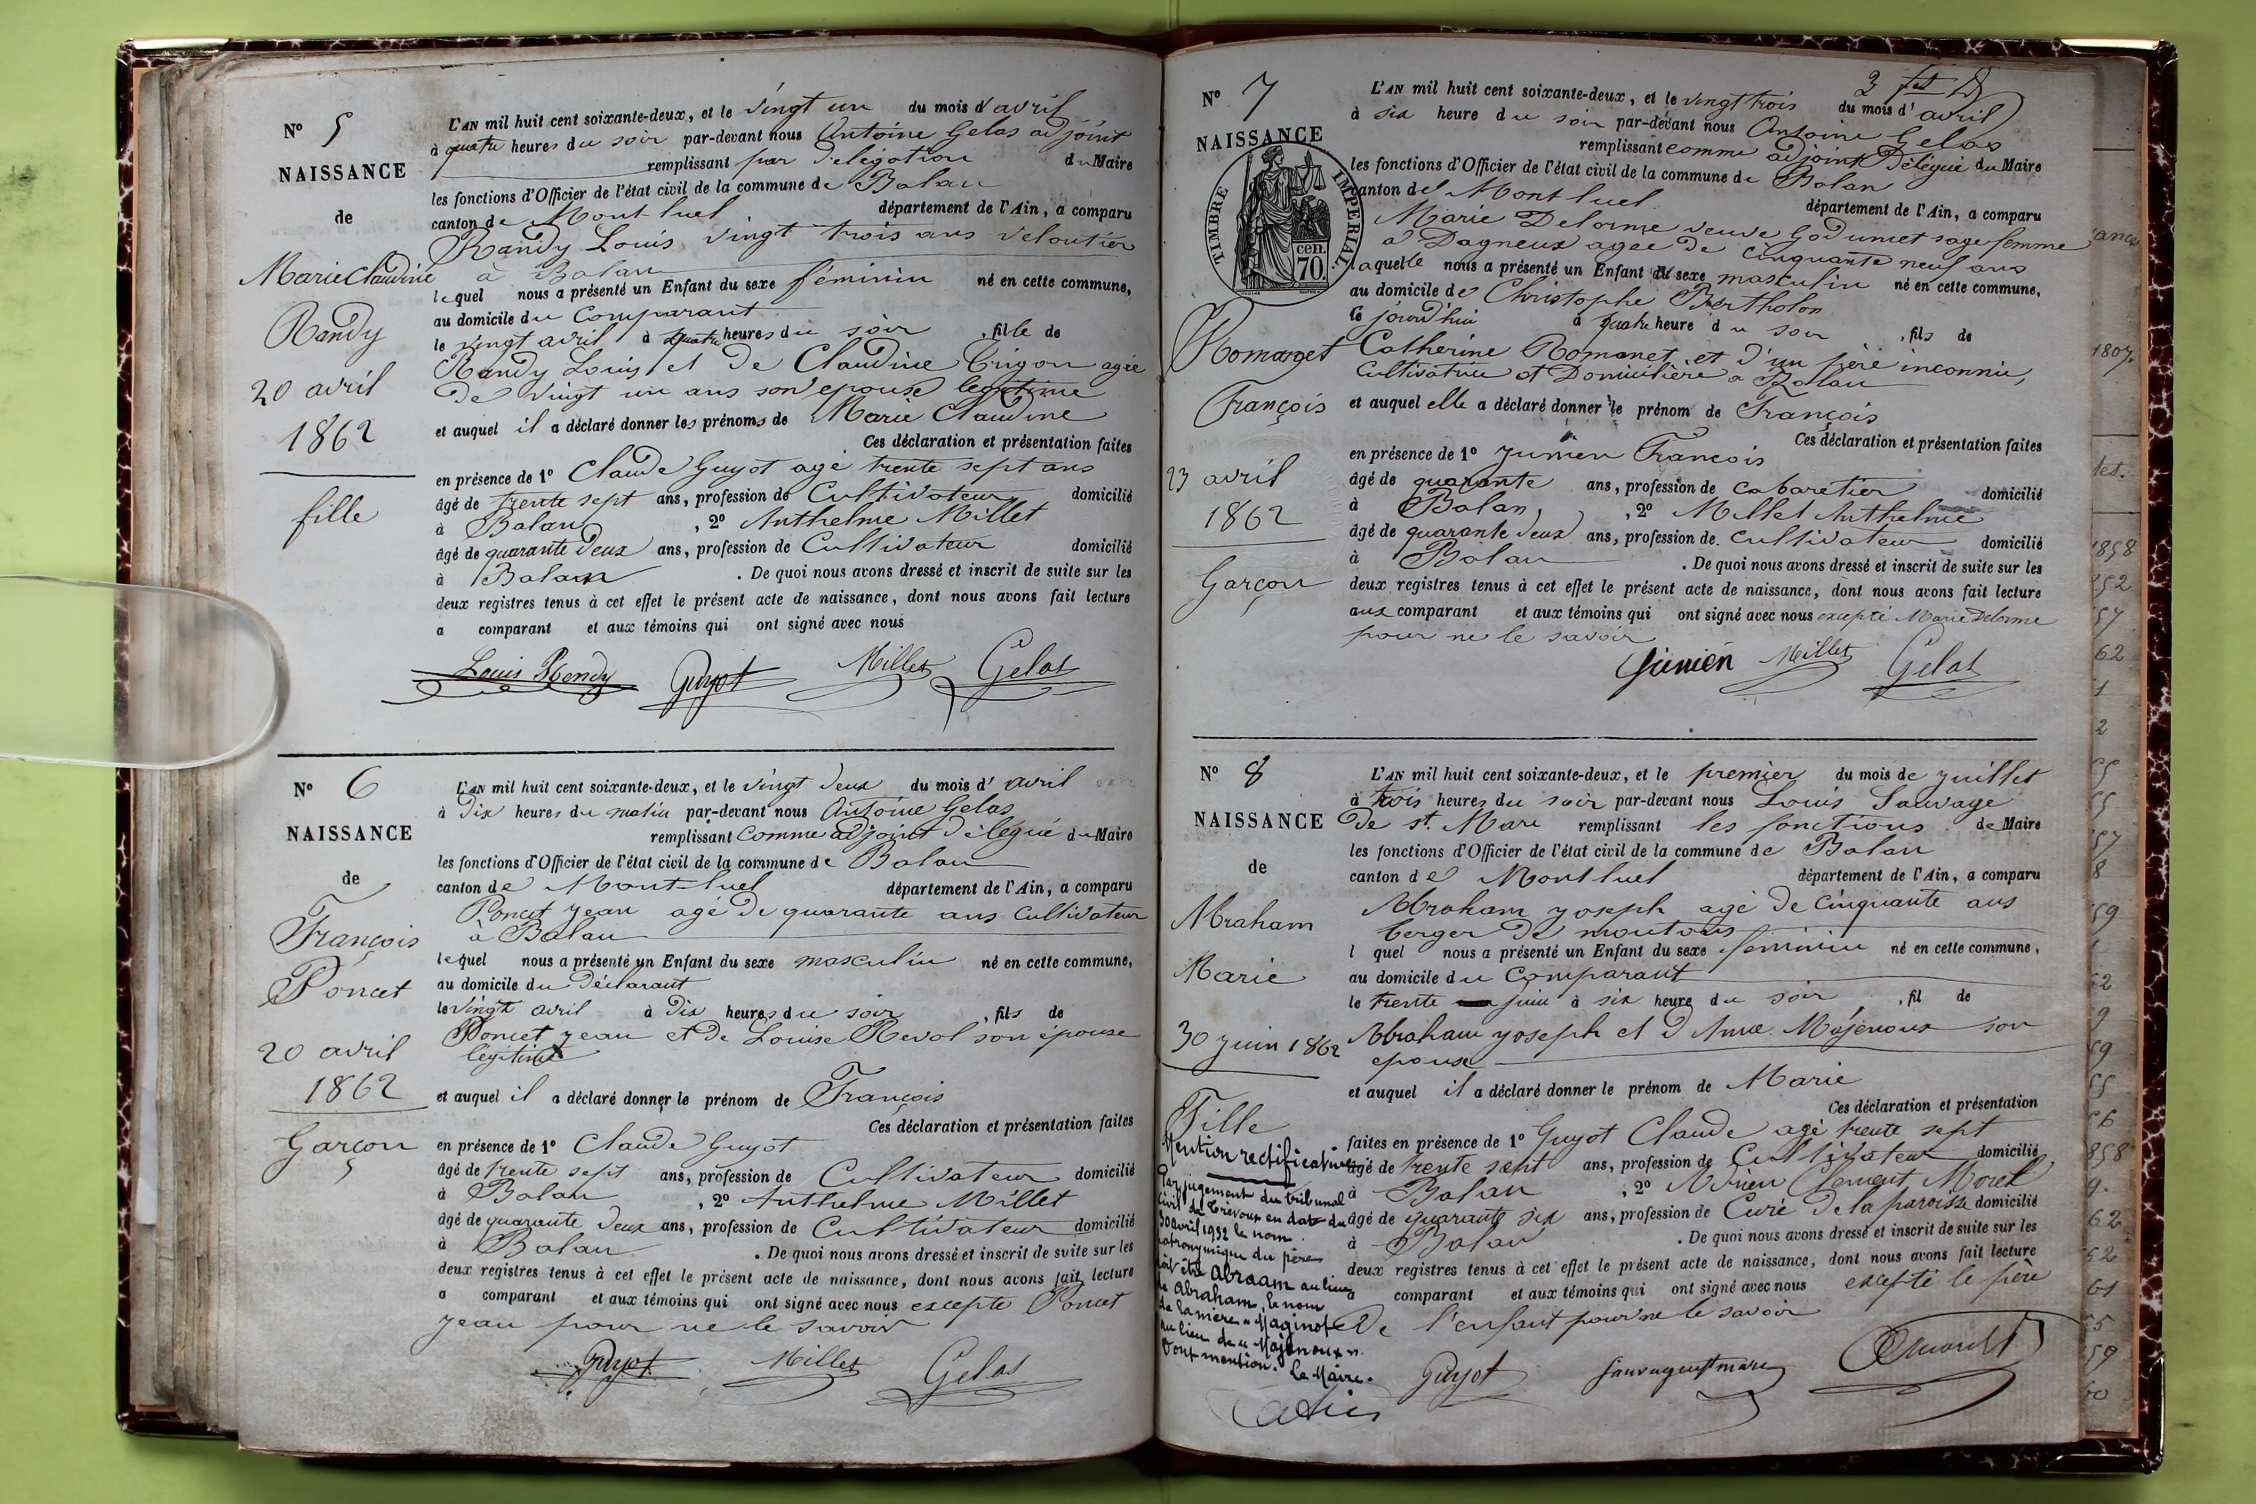 N° 5
NAISSANCE
de
Marie Claudine
Randy
20 avril
1862
fille
L'AN mil huit cent soixante-deux, et le vingt un du mois d'avril
à quatre heures du soir par-devant nous Antoine Gelas adjoint
remplissant par délégation du Maire
les fonctions d'Officier de l'état civil de la commune de Balan
canton de Montluel département de l'Ain, a comparu
Randy Louis vingt trois ans veloutier
à Balan
lequel nous a présenté un Enfant du sexe féminin né en cette commune,
au domicile du Comparant
le vingt avril à quatre heures du soir , fille de
Randy Louis et de Claudine Trigon agée
de vingt un ans son epouse legitime
et auquel il a déclaré donner les prénoms de Marie Claudine
Ces déclaration et présentation faites
en présence de 1° Claude Guyot agé trente sept ans
âgé de trente sept ans, profession de Cultivateur domicilié
à Balan , 2° Anthelme Millet
âgé de quarante deux ans, profession de Cultivateur domicilié
à Balan . De quoi nous avons dressé et inscrit de suite sur les
deux registres tenus à cet effet le présent acte de naissance, dont nous avons fait lecture
a comparant et aux témoins qui ont signé avec nous
Louis Rendy Guyot Millet Gelas
N° 6
NAISSANCE
de
François
Poncet
20 avril
1862
Garçon
L'AN mil huit cent soixante-deux, et le vingt deux du mois d'avril
à Dix heures du matin par-devant nous Antoine Gelas
remplissant comme adjoint délégué du Maire
les fonctions d'Officier de l'état civil de la commune de Balan
canton de Montluel département de l'Ain, a comparu
Poncet Jean agé de quarante ans Cultivateur
à Balan
lequel nous a présenté un Enfant du sexe masculin né en cette commune,
au domicile du Déclarant
le vingt avril à Dix heures du soir , fils de
Poncet Jean et de Louise Revol son épouse
légitime
et auquel il a déclaré donner le prénom de François
Ces déclaration et présentation faites
en présence de 1° Claude Guyot
âgé de trente sept ans, profession de Cultivateur domicilié
à Balan , 2° Anthelme Millet
âgé de quarante deux ans, profession de Cultivateur domicilié
à Balan . De quoi nous avons dressé et inscrit de suite sur les
deux registres tenus à cet effet le présent acte de naissance, dont nous avons fait lecture
a comparant et aux témoins qui ont signé avec nous excepte Poncet
Jean pour ne le savoir
Guyot Millet Gelas
N° 7
NAISSANCE
TIMBRE IMPERIAL.
70 cen.
Romanet
François
23 avril
1862
Garçon
L'AN mil huit cent soixante-deux, et le vingt trois du mois d'avril
à six heure du soir par-devant nous Antoine Gelas
remplissant comme adjoint Délégué du Maire
les fonctions d'Officier de l'état civil de la commune de Balan
canton de Montluel département de l'Ain, a comparu
Marie Delorme veuve Godumet sage femme
a Dagneux agee de cinquante neuf ans
laquelle nous a présenté un Enfant du sexe masculin né en cette commune,
au domicile de Christophe Bertholon
le jourd'hui à quatre heure du soir , fils de
Catherine Romanet et d'un père inconnu,
Cultivatrice et Domicilière a Balan
et auquel elle a déclaré donner le prénom de François
Ces déclaration et présentation faites
en présence de 1° Jumien François
âgé de quarante ans, profession de cabaretier domicilié
à Balan , 2° Millet Anthelme
âgé de quarante deux ans, profession de cultivateur domicilié
à Balan . De quoi nous avons dressé et inscrit de suite sur les
deux registres tenus à cet effet le présent acte de naissance, dont nous avons fait lecture
aux comparant et aux témoins qui ont signé avec nous excepté Marie Delorme
pour ne le savoir
Jumien Millet Gelas
N° 8
NAISSANCE
de
Abraham
Marie
30 juin 1862
Fille
Mention rectificative
Par jugement du tribunal
civil de Trévoux en date du
30 avril 1932 le nom
patronymique du père
doit être Abraam au lieu
de Abraham, le nom
de la mère "Maginot"
au lieu de "Majenoux".
Dont mention. Le Maire.
L'AN mil huit cent soixante-deux, et le premier du mois de juillet
à trois heures du soir par-devant nous Louis Sauvage
De St. Marc remplissant les fonctions de Maire
les fonctions d'Officier de l'état civil de la commune de Balan
canton de Montluel département de l'Ain, a comparu
Abraham Joseph agé de cinquante ans
berger de moutons
l quel nous a présenté un Enfant du sexe feminin né en cette commune,
au domicile du Comparant
le trente juin à six heure du soir , fil de
Abraham Joseph et d'Anne Majenoux son
epouse
et auquel il a déclaré donner le prénom de Marie
Ces déclaration et présentation
faites en présence de 1° Guyot Claude agé trente sept
âgé de trente sept ans, profession de Cultivateur domicilié
à Balan , 2° Clement Morel
âgé de quarante six ans, profession de Curé de la paroisse domicilié
à Balan . De quoi nous avons dressé et inscrit de suite sur les
deux registres tenus à cet effet le présent acte de naissance, dont nous avons fait lecture
comparant et aux témoins qui ont signé avec nous excepté le père
De l'enfant pour ne le savoir
Guyot